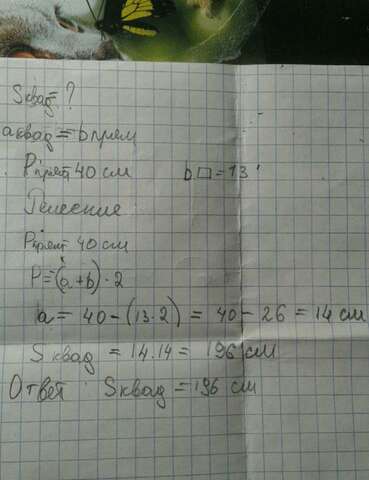 Sквад = ?
aквад = bпрям
Pпрям 40 см b□ = 13
Решение
Pпрям 40 см
P = (a + b) · 2
a = 40 - (13·2) = 40 - 26 = 14 см
Sквад = 14·14 = 196 см
Ответ: Sквад = 196 см